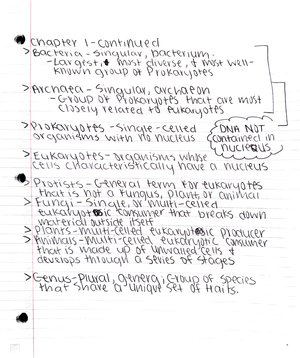 Chapter 1 - continued
> Bacteria - Singular, bacterium.
- Largest, & most diverse, & most well-
known group of Prokaryotes
> Archaea - Singular, archaeon
- Group of Prokaryotes that are most
closely related to eukaryotes
> Prokaryotes - Single-celled
organisms with no nucleus
DNA NOT
contained in
nucleus
> Eukaryotes - organisms whose
cells characteristically have a nucleus
> Protists - General term for eukaryotes
that is not a fungus, plant, or animal
> Fungi - Single, or multi-celled
eukaryotic consumer that breaks down
material outside itself
> Plants - multi-celled eukaryotic producer
> Animals - multi-celled eukaryotic consumer
that is made up of unwalled cells &
develops through a series of stages
> Genus - Plural, genera; Group of species
that share a unique set of traits.